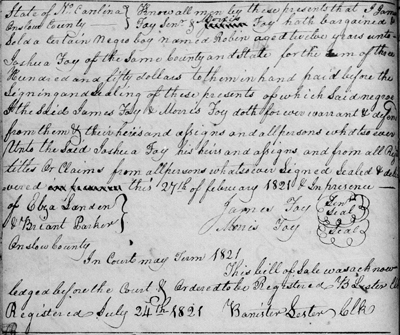 State of No Carolina } Know all men by these presents that I James
Onslow County } Foy Senr & Morris Foy hath bargained &
Sold a Certain Negro boy named Robin aged twelve years unto
Joshua Foy of the Same County and State for the Sum of three
Hundried and fifty dollars to them in hand paid before the
Signing and Sealing of these presents of which Said negro
& the Said James Foy & Morris Foy doth for ever warrant & defend
from them & their heirs and assigns and all persons whatsoever
Unto the Said Joshua Foy his heirs and assigns, and from all Rights
titles Or Claims from all persons whatsoever Signed Sealed & deli
vered this 27th of february 1821 & In presence —
of Elza Landen } James Foy {Senr Seal}
& Briant Parker } Morris Foy {Seal}
Onslow County
In Court may Term 1821
This bill of Sale was acknow
ledged before the Court & Ordered to be Registered B Lester Clk
Registered July 24th 1821 Banister Lester Clk